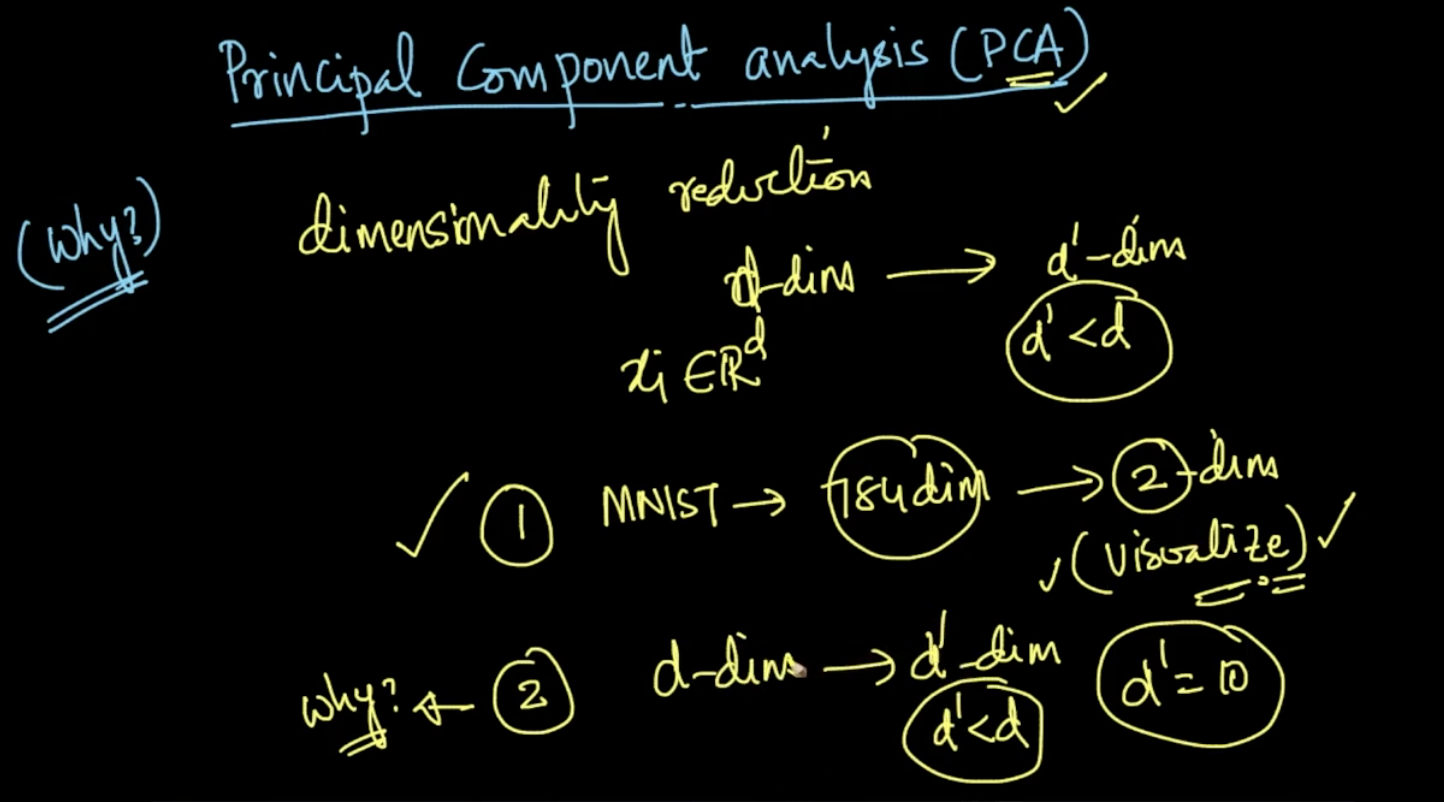 Principal Component analysis (PCA)
(Why?)
dimensionality reduction
d-dims → d'-dims
xi ∈ ℝ^d
d' < d
① MNIST → 784 dim → 2-dims
(visualize)
why? ← ② d-dims → d'-dim d' = 10
d' < d